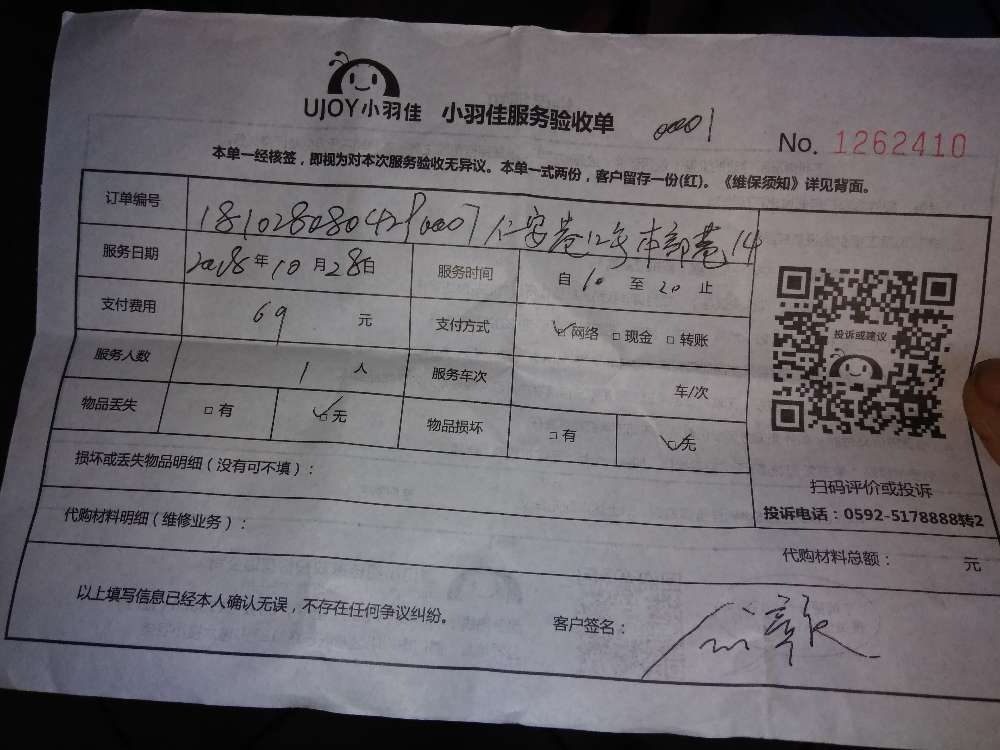 UJOY小羽佳 小羽佳服务验收单 0001
No. 1262410
本单一经核签，即视为对本次服务验收无异议。本单一式两份，客户留存一份(红)。《维保须知》详见背面。
订单编号 仁安巷12号本部巷14
服务日期 2018年10月28日 服务时间 自10至20止
支付费用 69 元 支付方式 ☑网络 □现金 □转账
服务人数 1 人 服务车次 车/次
物品丢失 □有 ☑无 物品损坏 □有 ☑无
损坏或丢失物品明细（没有可不填）：
投诉或建议
扫码评价或投诉
投诉电话：0592-5178888转2
代购材料明细（维修业务）：
代购材料总额： 元
以上填写信息已经本人确认无误，不存在任何争议纠纷。 客户签名：